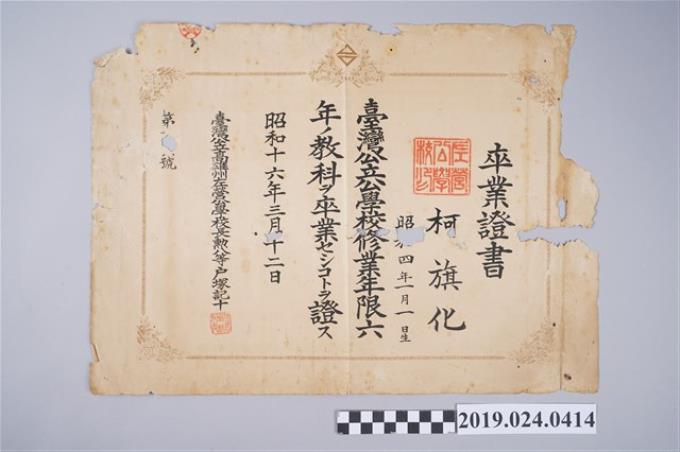 卒業證書
柯旗化
昭 四年一月一日生
左營公學校印
臺灣公立公學校修業年限六
年ノ教科ヲ卒業セシコトヲ證ス
昭和十六年三月十二日
臺灣公立高雄州左營公學校長勲八等戸塚記十
第 號
2019.024.0414